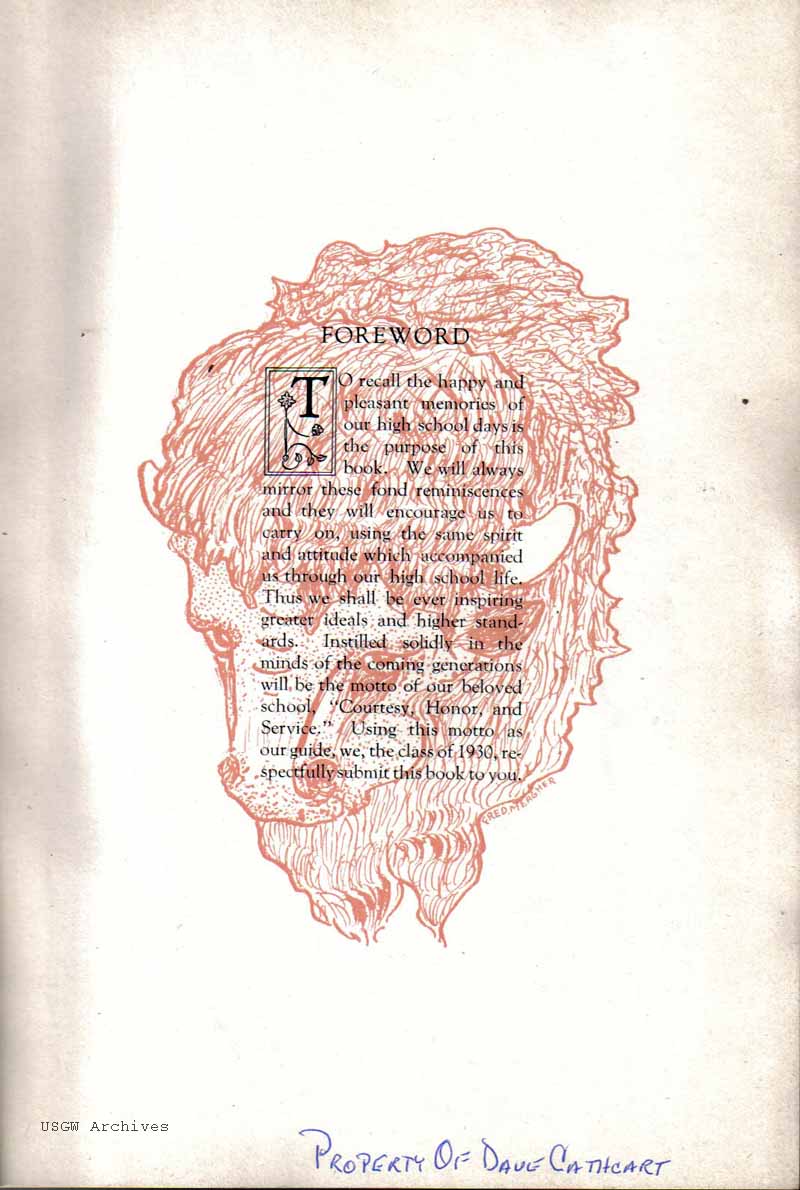 FOREWORD
TO recall the happy and
pleasant memories of
our high school days is
the purpose of this
book. We will always
mirror these fond reminiscences
and they will encourage us to
carry on, using the same spirit
and attitude which accompanied
us through our high school life.
Thus we shall be ever inspiring
greater ideals and higher stand-
ards. Instilled solidly in the
minds of the coming generations
will be the motto of our beloved
school, "Courtesy, Honor, and
Service." Using this motto as
our guide, we, the class of 1930, re-
spectfully submit this book to you.
FRED MEAGHER
USGW Archives
PROPERTY OF DAVE CATHCART